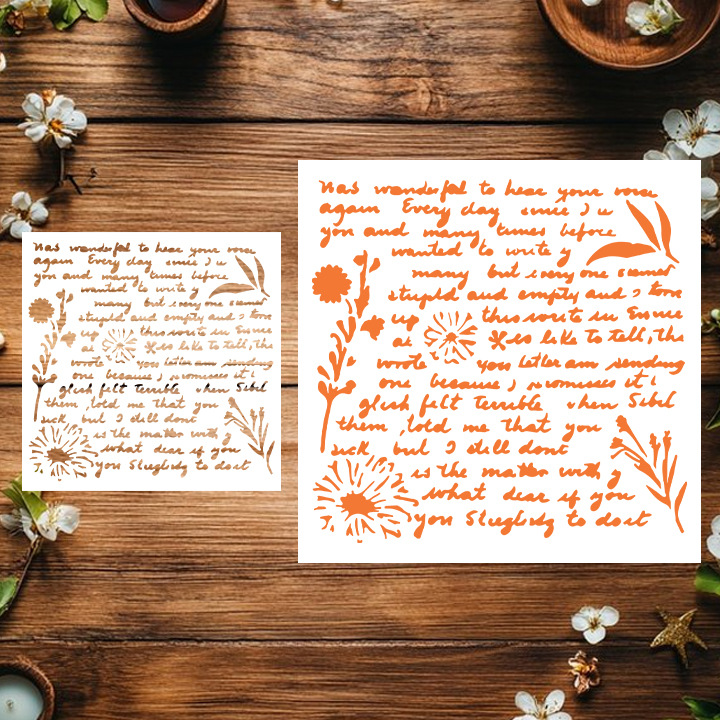 was wonderful to hear your voice
again Every day since I
you and many times before
wanted to write y
many but everyone seemed
stupid and empty and I tore
up this write in
at is like to tell, the
wrote you letter am sending
one because I promises it
felt Terrible when Sebel
them, told me that you
sick but I still dont
is the matter with y
what dear if you
you to dost
was wonderful to hear your voice
again Every day since I
you and many times before
wanted to write y
many but everyone seemed
stupid and empty and I tore
up this write in
at is like to tell, the
wrote you letter am sending
one because I promises it
felt Terrible when Sebel
them, told me that you
sick but I still dont
is the matter with y
what dear if you
you to dost